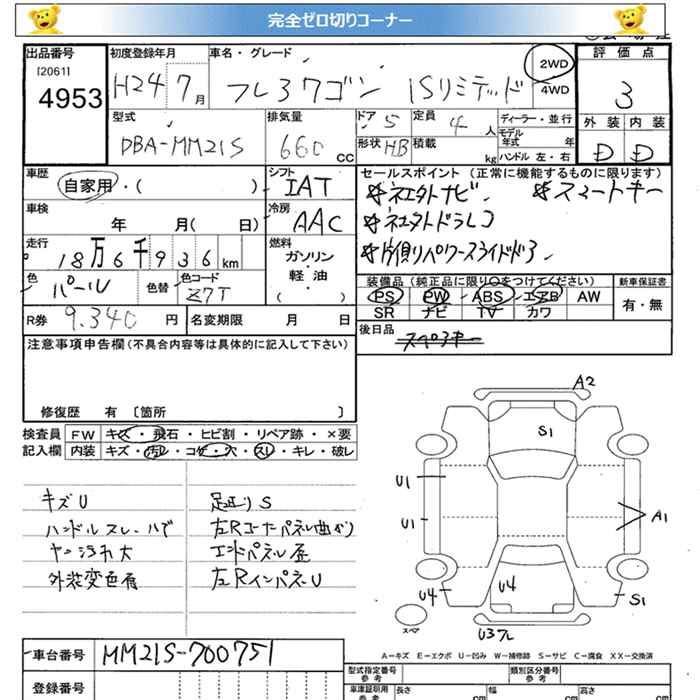 完全ゼロ切りコーナー
出品番号 初度登録年月 車名・グレード 評価点
[2061]
4953 H24 7月 フレ3ワゴン ISリミテッド 2WD 4WD 3
型式 排気量 ドア 5 定員 4人 ディーラー・並行 外装 内装
DBA-MM21S 660 CC 形状 HB 積載 kg モデル年式 年 D D
ハンドル 左・右
車歴 シフト セールスポイント (正常に機能するものに限ります)
自家用・( ) IAT ネエタトナビ. スマートキー
車検 冷房 ネエタトドラレコ
年 月( 日) AAC 片側リパワースライドドア
走行 燃料
18万6千936km ガソリン
軽・油
( )
色 パール 色替 色コード Z7T 装備品 (純正品に限り○をつけてください) 新車保証書
PS PW ABS エアB AW 有・無
SR ナビ TV カワ
R券 9.340 円 名変期限 月 日 後日品
注意事項申告欄(不具合内容等は具体的に記入して下さい) スペアキー
修復歴 有 [箇所 ]
検査員 FW キズ・飛石・ヒビ割・リペア跡・×要
記入欄 内装 キズ・汚レ・コゲ・穴・スレ・キレ・破レ
キズU 足廻りS
ハンドルスレ・ハゲ 左Rコーナーパネル曲がり
エンドパネル歪
外装変色有 左RインパネU
A2
S1
U1
U1
A1
U4
U4
S1
スペア
A−キズ E−エクボ U−凹み W−補修跡 S−サビ C−腐食 XX−交換済
車台番号 MM21S-700751
型式指定番号 参考 類別区分番号 参考
登録番号 車庫証明用 参考 長さ cm 幅 cm 高さ cm